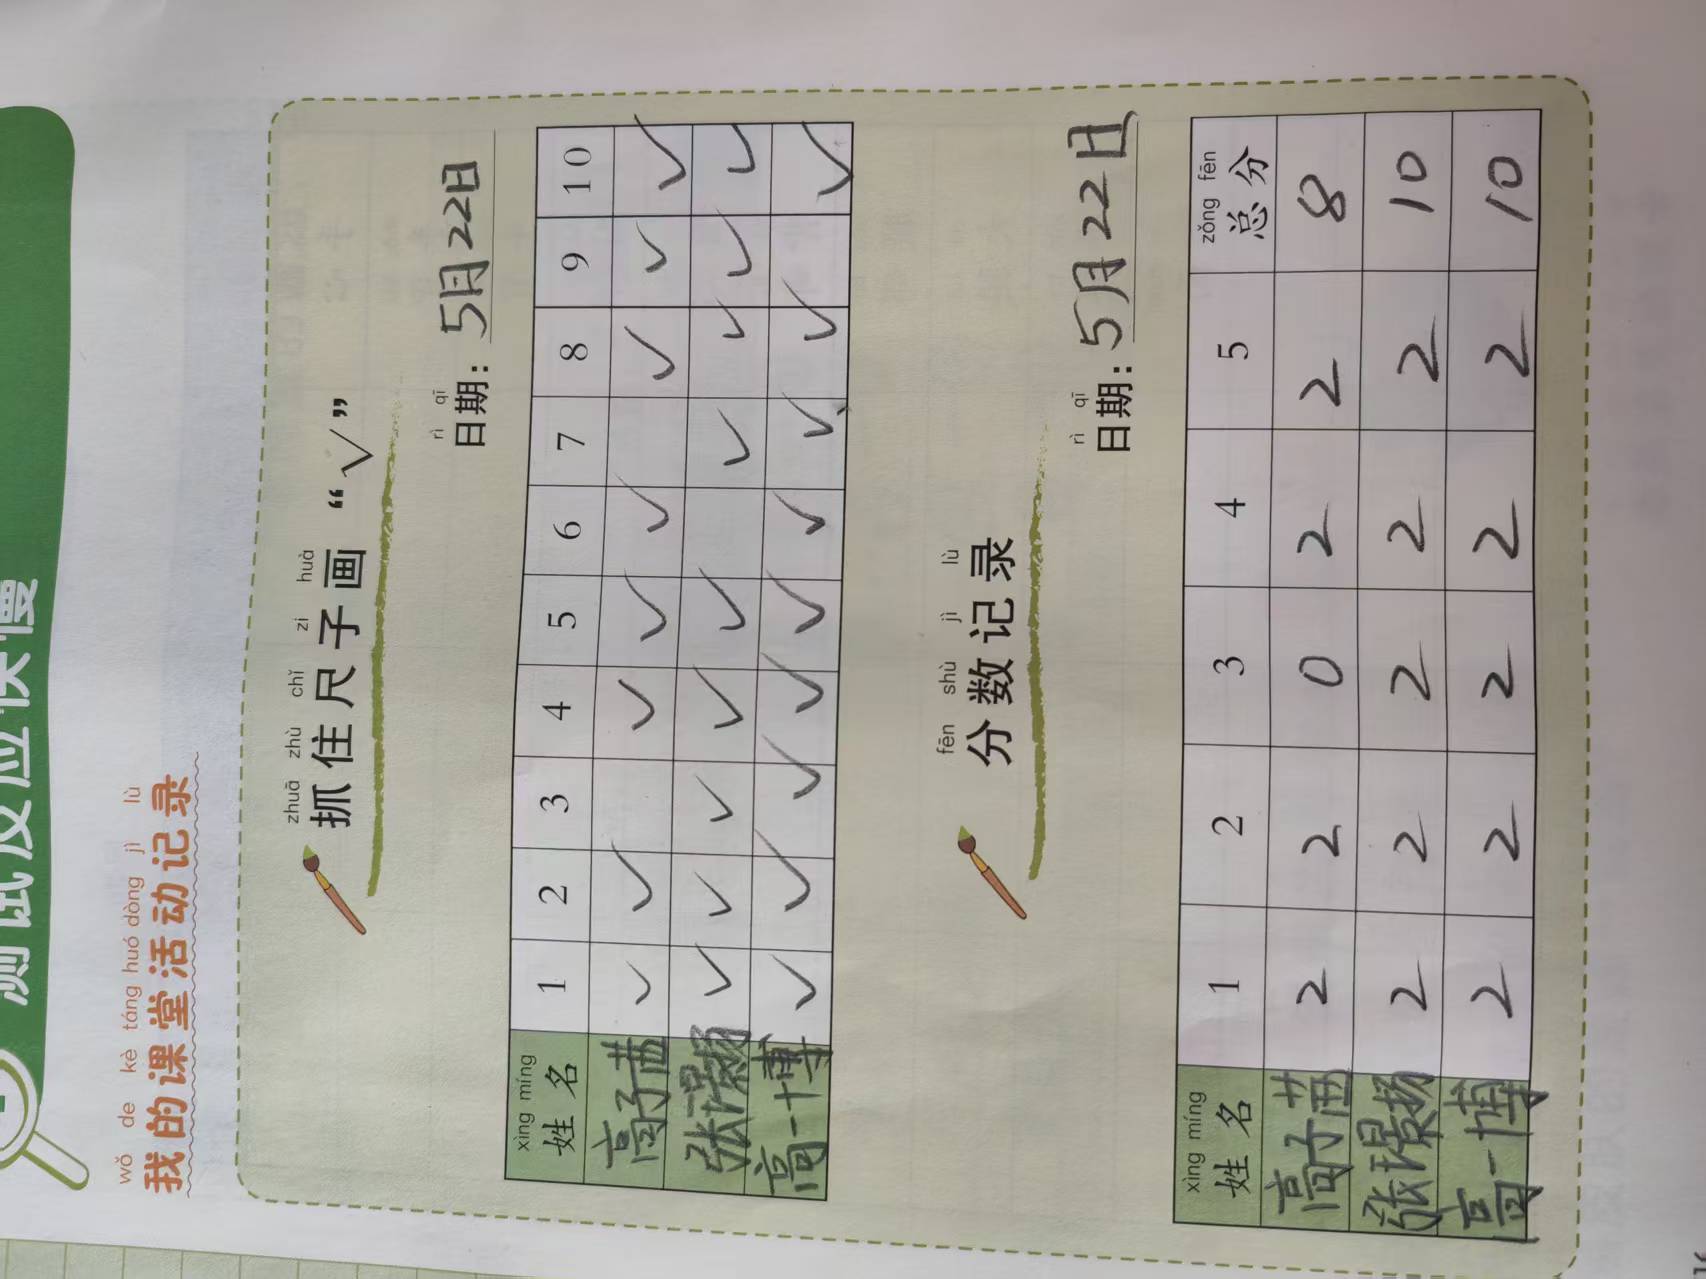 测试反应快慢
wǒ de kè táng huó dòng jì lù
我的课堂活动记录
zhuā zhù chǐ zi huà
抓住尺子画“√”
rì qī
日期：5月22日
xìng míng
姓名 1 2 3 4 5 6 7 8 9 10
高子茜 ✓ ✓ ✓ ✓ ✓ ✓ ✓ ✓
张 ✓ ✓ ✓ ✓ ✓ ✓ ✓ ✓ ✓
高一博 ✓ ✓ ✓ ✓ ✓ ✓ ✓ ✓ ✓
fēn shù jì lù
分数记录
rì qī
日期：5月22日
xìng míng zǒng fēn
姓名 1 2 3 4 5 总分
高子茜 2 2 0 2 2 8
张 2 2 2 2 2 10
高一博 2 2 2 2 2 10